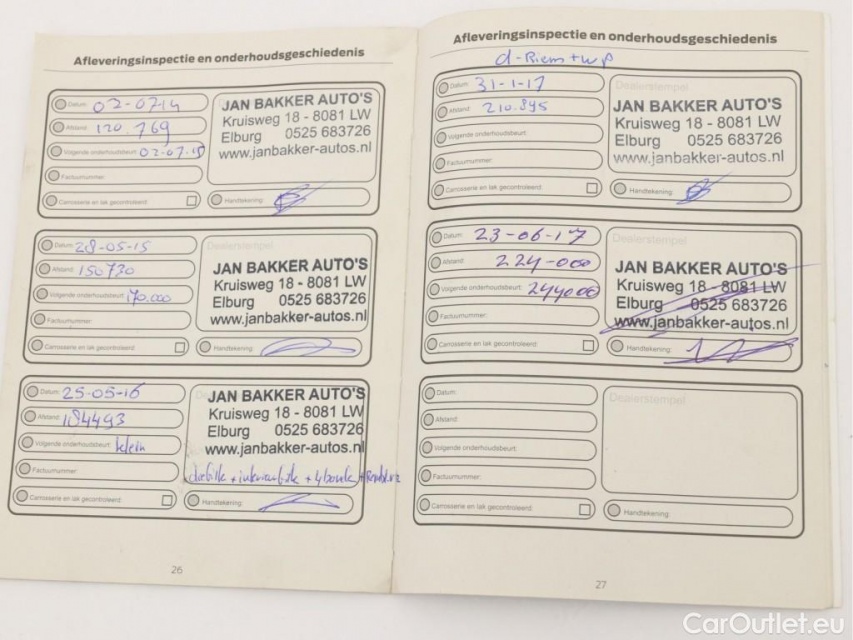 Afleveringsinspectie en onderhoudsgeschiedenis
Datum: 02-07-14
Afstand: 120.769
Volgende onderhoudsbeurt: 02-07-15
Factuurnummer:
Carrosserie en lak gecontroleerd:
JAN BAKKER AUTO'S
Kruisweg 18 - 8081 LW
Elburg 0525 683726
www.janbakker-autos.nl
Handtekening:
Datum: 28-05-15
Afstand: 150730
Volgende onderhoudsbeurt: 170.000
Factuurnummer:
Carrosserie en lak gecontroleerd:
Dealerstempel
JAN BAKKER AUTO'S
Kruisweg 18 - 8081 LW
Elburg 0525 683726
www.janbakker-autos.nl
Handtekening:
Datum: 25-05-16
Afstand: 184493
Volgende onderhoudsbeurt: klein
Factuurnummer:
Carrosserie en lak gecontroleerd:
JAN BAKKER AUTO'S
Kruisweg 18 - 8081 LW
Elburg 0525 683726
www.janbakker-autos.nl
+ interieurfilter + 4
Handtekening:
26
Afleveringsinspectie en onderhoudsgeschiedenis
d-Riem + wp
Datum: 31-1-17
Afstand: 210.895
Volgende onderhoudsbeurt:
Factuurnummer:
Carrosserie en lak gecontroleerd:
Dealerstempel
JAN BAKKER AUTO'S
Kruisweg 18 - 8081 LW
Elburg 0525 683726
www.janbakker-autos.nl
Handtekening:
Datum: 23-06-17
Afstand: 224-000
Volgende onderhoudsbeurt: 244000
Factuurnummer:
Carrosserie en lak gecontroleerd:
Dealerstempel
JAN BAKKER AUTO'S
Kruisweg 18 - 8081 LW
Elburg 0525 683726
www.janbakker-autos.nl
Handtekening:
Datum:
Afstand:
Volgende onderhoudsbeurt:
Factuurnummer:
Carrosserie en lak gecontroleerd:
Dealerstempel
Handtekening:
27
CarOutlet.eu